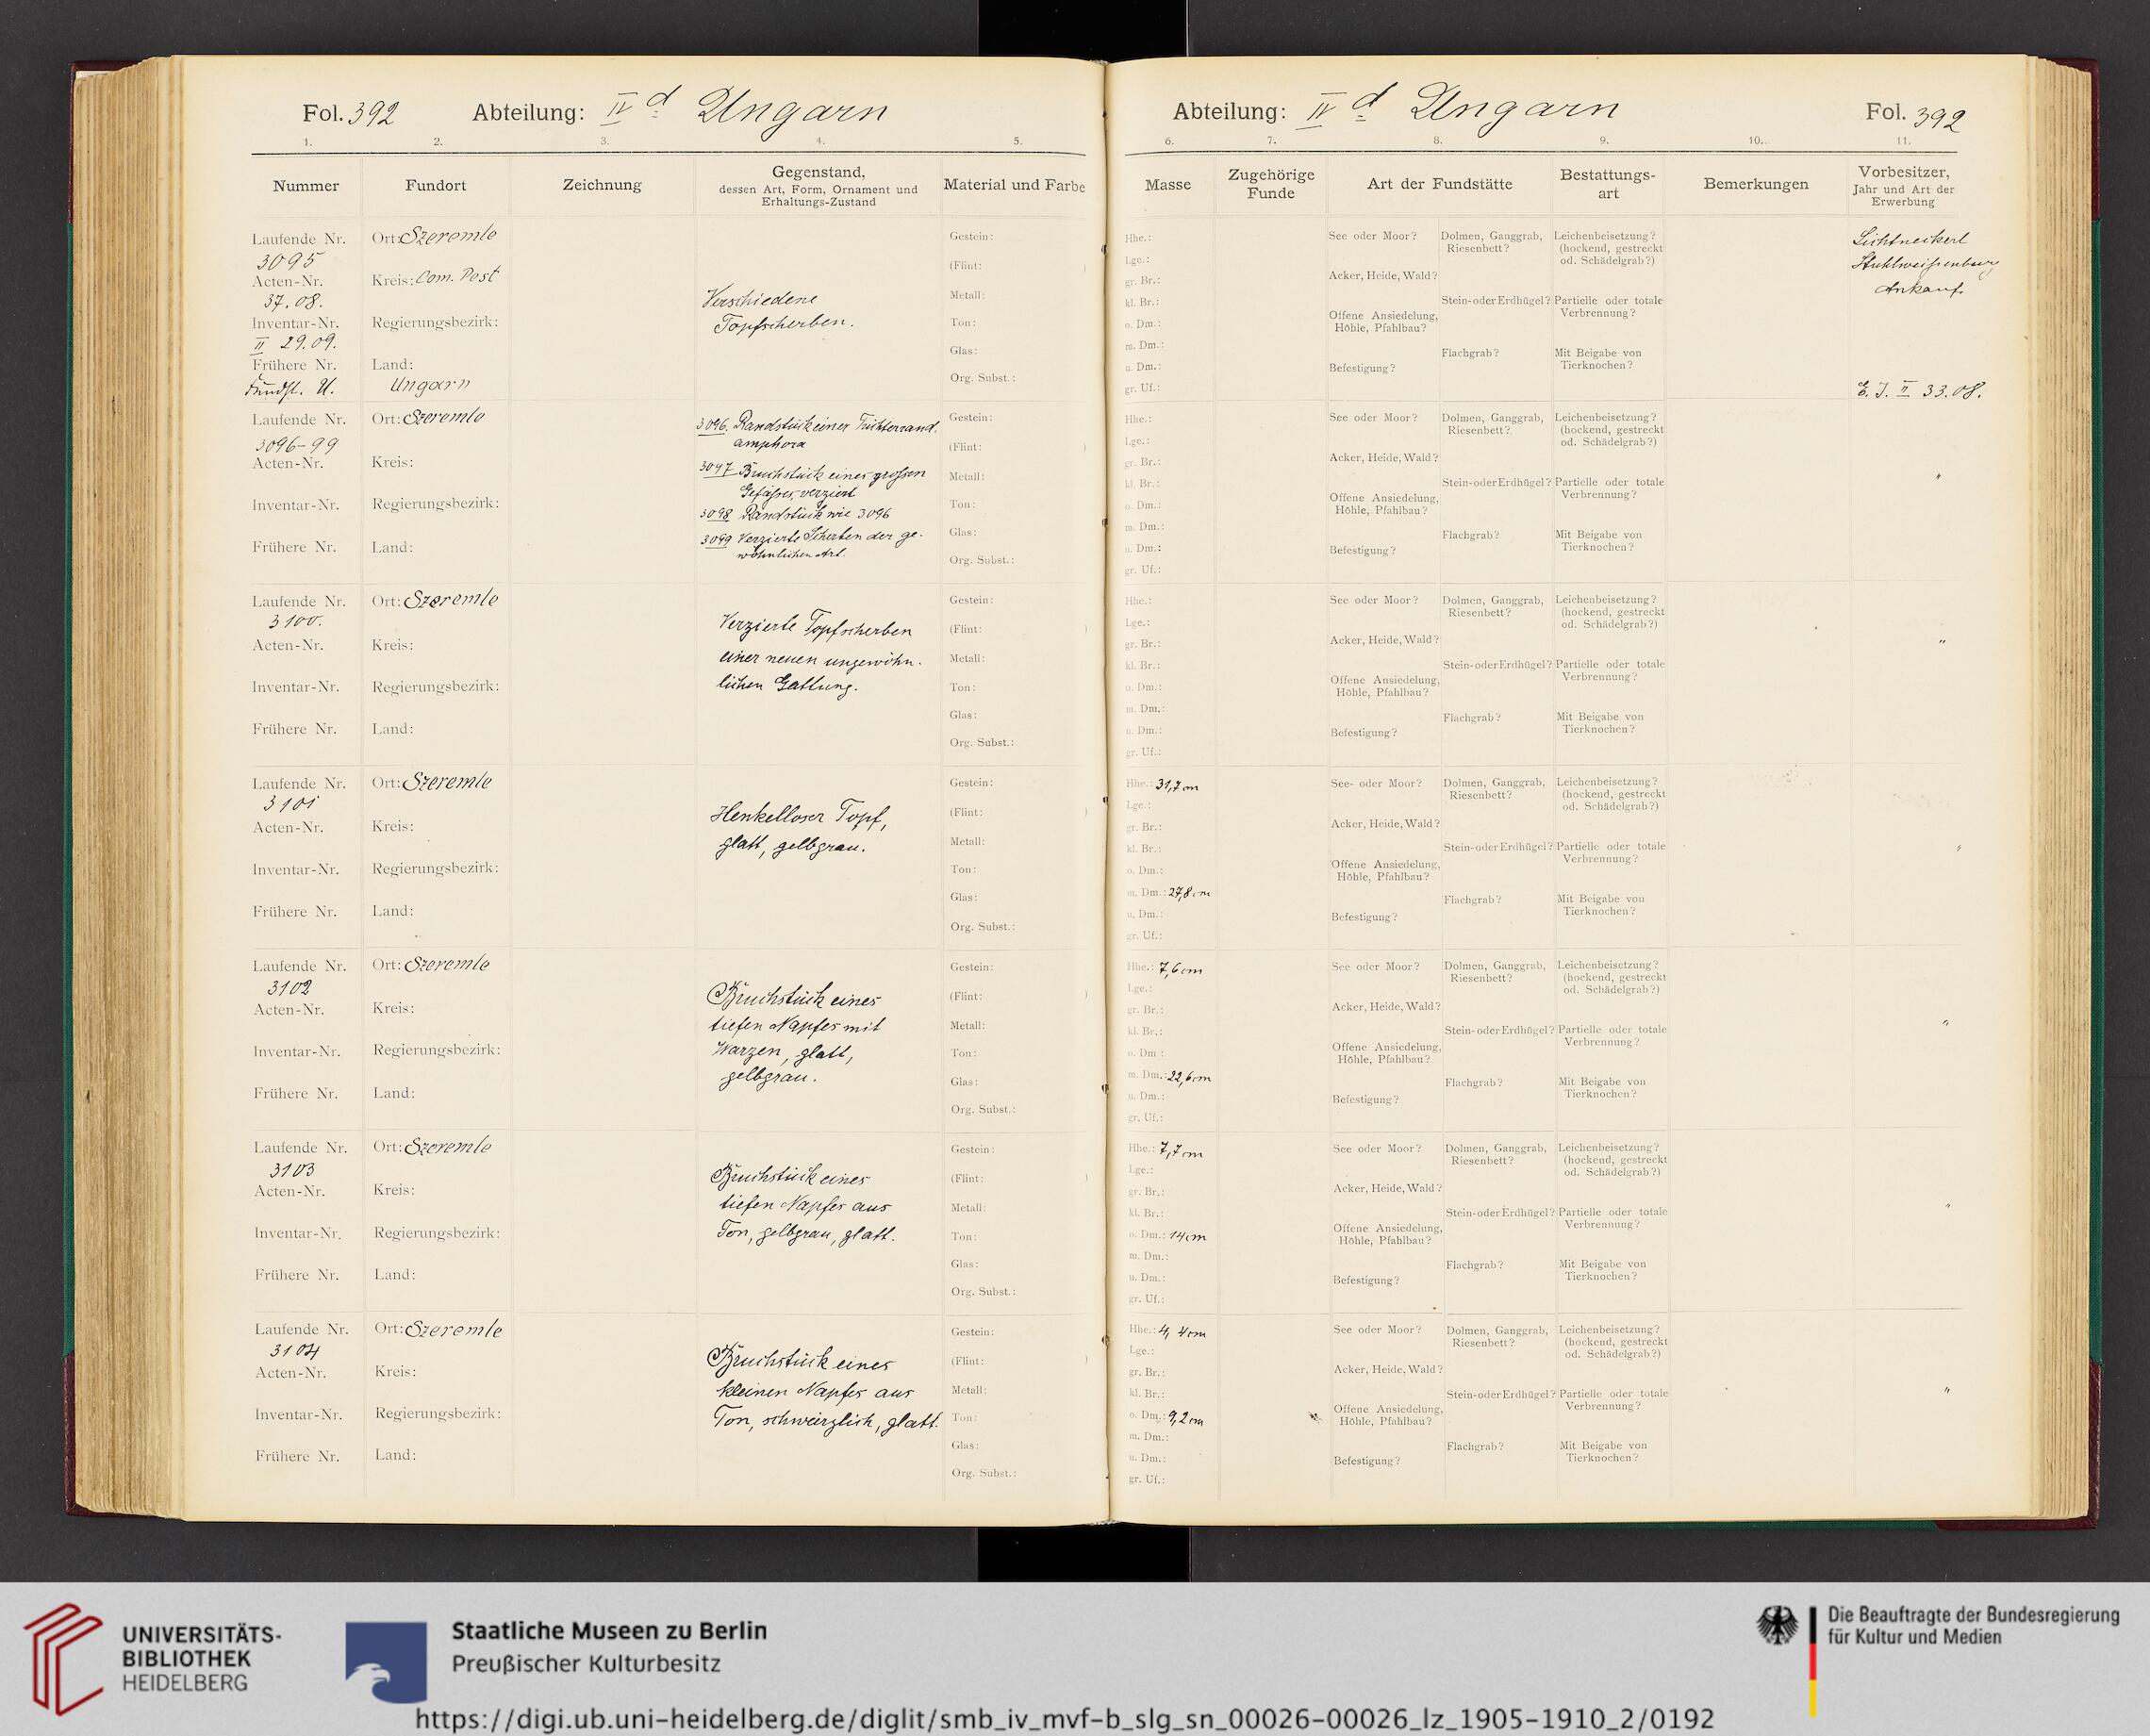 Fol. 392
Abteilung: IV d Ungarn
1. 2. 3. 4. 5.
Nummer
Fundort
Zeichnung
Gegenstand,
dessen Art, Form, Ornament und
Erhaltungs-Zustand
Material und Farbe
Laufende Nr.
3095
Acten-Nr.
37.08.
Inventar-Nr.
II 29.09.
Frühere Nr.
Fundst. U.
Ort: Szeremle
Kreis: Com. Pest
Regierungsbezirk:
Land:
Ungarn
Verschiedene
Topfscherben.
Gestein:
(Flint: )
Metall:
Ton:
Glas:
Org. Subst.:
Laufende Nr.
3096-99
Acten-Nr.
Inventar-Nr.
Frühere Nr.
Ort: Szeremle
Kreis:
Regierungsbezirk:
Land:
3096. Randstück einer Trichterrand.
amphora
3097 Bruchstück eines grossen
Gefässes, verziert
3098 Randstück wie 3096
3099 Verzierte Scherben der ge-
wöhnlichen Art.
Gestein:
(Flint: )
Metall:
Ton:
Glas:
Org. Subst.:
Laufende Nr.
3100.
Acten-Nr.
Inventar-Nr.
Frühere Nr.
Ort: Szeremle
Kreis:
Regierungsbezirk:
Land:
Verzierte Topfscherben
einer neuen ungewöhn-
lichen Gattung.
Gestein:
(Flint: )
Metall:
Ton:
Glas:
Org. Subst.:
Laufende Nr.
3101
Acten-Nr.
Inventar-Nr.
Frühere Nr.
Ort: Szeremle
Kreis:
Regierungsbezirk:
Land:
Henkelloser Topf,
glatt, gelbgrau.
Gestein:
(Flint: )
Metall:
Ton:
Glas:
Org. Subst.:
Laufende Nr.
3102
Acten-Nr.
Inventar-Nr.
Frühere Nr.
Ort: Szeremle
Kreis:
Regierungsbezirk:
Land:
Bruchstück eines
tiefen Napfes mit
Warzen, glatt,
gelbgrau.
Gestein:
(Flint: )
Metall:
Ton:
Glas:
Org. Subst.:
Laufende Nr.
3103
Acten-Nr.
Inventar-Nr.
Frühere Nr.
Ort: Szeremle
Kreis:
Regierungsbezirk:
Land:
Bruchstück eines
tiefen Napfes aus
Ton, gelbgrau, glatt.
Gestein:
(Flint: )
Metall:
Ton:
Glas:
Org. Subst.:
Laufende Nr.
3104
Acten-Nr.
Inventar-Nr.
Frühere Nr.
Ort: Szeremle
Kreis:
Regierungsbezirk:
Land:
Bruchstück eines
kleinen Napfes aus
Ton, schwärzlich, glatt.
Gestein:
(Flint: )
Metall:
Ton:
Glas:
Org. Subst.:
Abteilung: IV d Ungarn
Fol. 392
6. 7. 8. 9. 10. 11.
Masse
Zugehörige
Funde
Art der Fundstätte
Bestattungs-
art
Bemerkungen
Vorbesitzer,
Jahr und Art der
Erwerbung
Hhe.:
Lge.:
gr. Br.:
kl. Br.:
o. Dm.:
m. Dm.:
u. Dm.:
gr. Uf.:
See oder Moor?
Acker, Heide, Wald?
Offene Ansiedelung,
Höhle, Pfahlbau?
Befestigung?
Dolmen, Ganggrab,
Riesenbett?
Stein- oder Erdhügel?
Flachgrab?
Leichenbeisetzung?
(hockend, gestreckt
od. Schädelgrab?)
Partielle oder totale
Verbrennung?
Mit Beigabe von
Tierknochen?
Lichtneckert
Stuhlweissenburg
Ankauf.
E. J. II 33.08.
Hhe.:
Lge.:
gr. Br.:
kl. Br.:
o. Dm.:
m. Dm.:
u. Dm.:
gr. Uf.:
See oder Moor?
Acker, Heide, Wald?
Offene Ansiedelung,
Höhle, Pfahlbau?
Befestigung?
Dolmen, Ganggrab,
Riesenbett?
Stein- oder Erdhügel?
Flachgrab?
Leichenbeisetzung?
(hockend, gestreckt
od. Schädelgrab?)
Partielle oder totale
Verbrennung?
Mit Beigabe von
Tierknochen?
"
Hhe.:
Lge.:
gr. Br.:
kl. Br.:
o. Dm.:
m. Dm.:
u. Dm.:
gr. Uf.:
See oder Moor?
Acker, Heide, Wald?
Offene Ansiedelung,
Höhle, Pfahlbau?
Befestigung?
Dolmen, Ganggrab,
Riesenbett?
Stein- oder Erdhügel?
Flachgrab?
Leichenbeisetzung?
(hockend, gestreckt
od. Schädelgrab?)
Partielle oder totale
Verbrennung?
Mit Beigabe von
Tierknochen?
"
Hhe.: 31,7 cm
Lge.:
gr. Br.:
kl. Br.:
o. Dm.:
m. Dm.: 27,8 cm
u. Dm.:
gr. Uf.:
See- oder Moor?
Acker, Heide, Wald?
Offene Ansiedelung,
Höhle, Pfahlbau?
Befestigung?
Dolmen, Ganggrab,
Riesenbett?
Stein- oder Erdhügel?
Flachgrab?
Leichenbeisetzung?
(hockend, gestreckt
od. Schädelgrab?)
Partielle oder totale
Verbrennung?
Mit Beigabe von
Tierknochen?
"
Hhe.: 7,6 cm
Lge.:
gr. Br.:
kl. Br.:
o. Dm.:
m. Dm.: 22,6 cm
u. Dm.:
gr. Uf.:
See oder Moor?
Acker, Heide, Wald?
Offene Ansiedelung,
Höhle, Pfahlbau?
Befestigung?
Dolmen, Ganggrab,
Riesenbett?
Stein- oder Erdhügel?
Flachgrab?
Leichenbeisetzung?
(hockend, gestreckt
od. Schädelgrab?)
Partielle oder totale
Verbrennung?
Mit Beigabe von
Tierknochen?
"
Hhe.: 7,7 cm
Lge.:
gr. Br.:
kl. Br.:
o. Dm.: 14 cm
m. Dm.:
u. Dm.:
gr. Uf.:
See oder Moor?
Acker, Heide, Wald?
Offene Ansiedelung,
Höhle, Pfahlbau?
Befestigung?
Dolmen, Ganggrab,
Riesenbett?
Stein- oder Erdhügel?
Flachgrab?
Leichenbeisetzung?
(hockend, gestreckt
od. Schädelgrab?)
Partielle oder totale
Verbrennung?
Mit Beigabe von
Tierknochen?
"
Hhe.: 4,4 cm
Lge.:
gr. Br.:
kl. Br.:
o. Dm.: 9,2 cm
m. Dm.:
u. Dm.:
gr. Uf.:
See oder Moor?
Acker, Heide, Wald?
Offene Ansiedelung,
Höhle, Pfahlbau?
Befestigung?
Dolmen, Ganggrab,
Riesenbett?
Stein- oder Erdhügel?
Flachgrab?
Leichenbeisetzung?
(hockend, gestreckt
od. Schädelgrab?)
Partielle oder totale
Verbrennung?
Mit Beigabe von
Tierknochen?
"
UNIVERSITÄTS-
BIBLIOTHEK
HEIDELBERG
Staatliche Museen zu Berlin
Preußischer Kulturbesitz
Die Beauftragte der Bundesregierung
für Kultur und Medien
https://digi.ub.uni-heidelberg.de/diglit/smb_iv_mvf-b_slg_sn_00026-00026_lz_1905-1910_2/0192